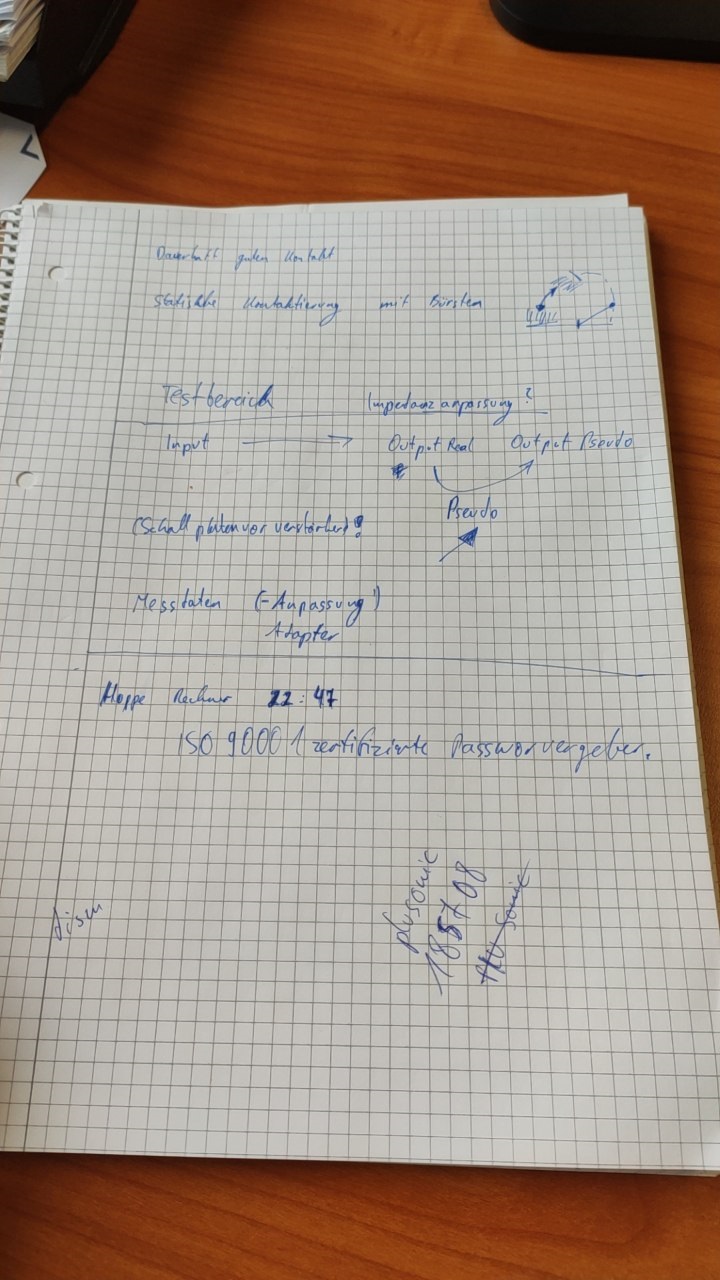 Dauerhaft guten Kontakt
Statische Kontaktierung mit Bürsten
Testbereich Impedanzanpassung?
Input Output Real Output Pseudo
Pseudo
(Schallplatenvorverstärker)!
Messdaten (-Anpassung)
Adapter
Hoppe Rechner 22:47
ISO 9000 1 zertifizierte Passworvergeber.
plusonic
185708
Sonic